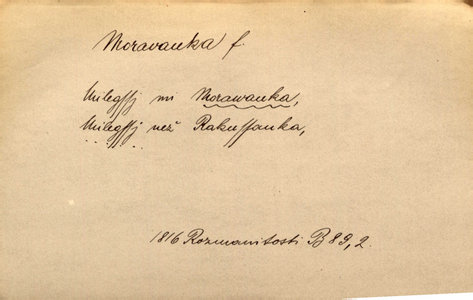 Moravanka f.
Milegssj mi Morawanka,
Milegssj než Rakussanka,
1816 Rozmanitosti B 89, 2.